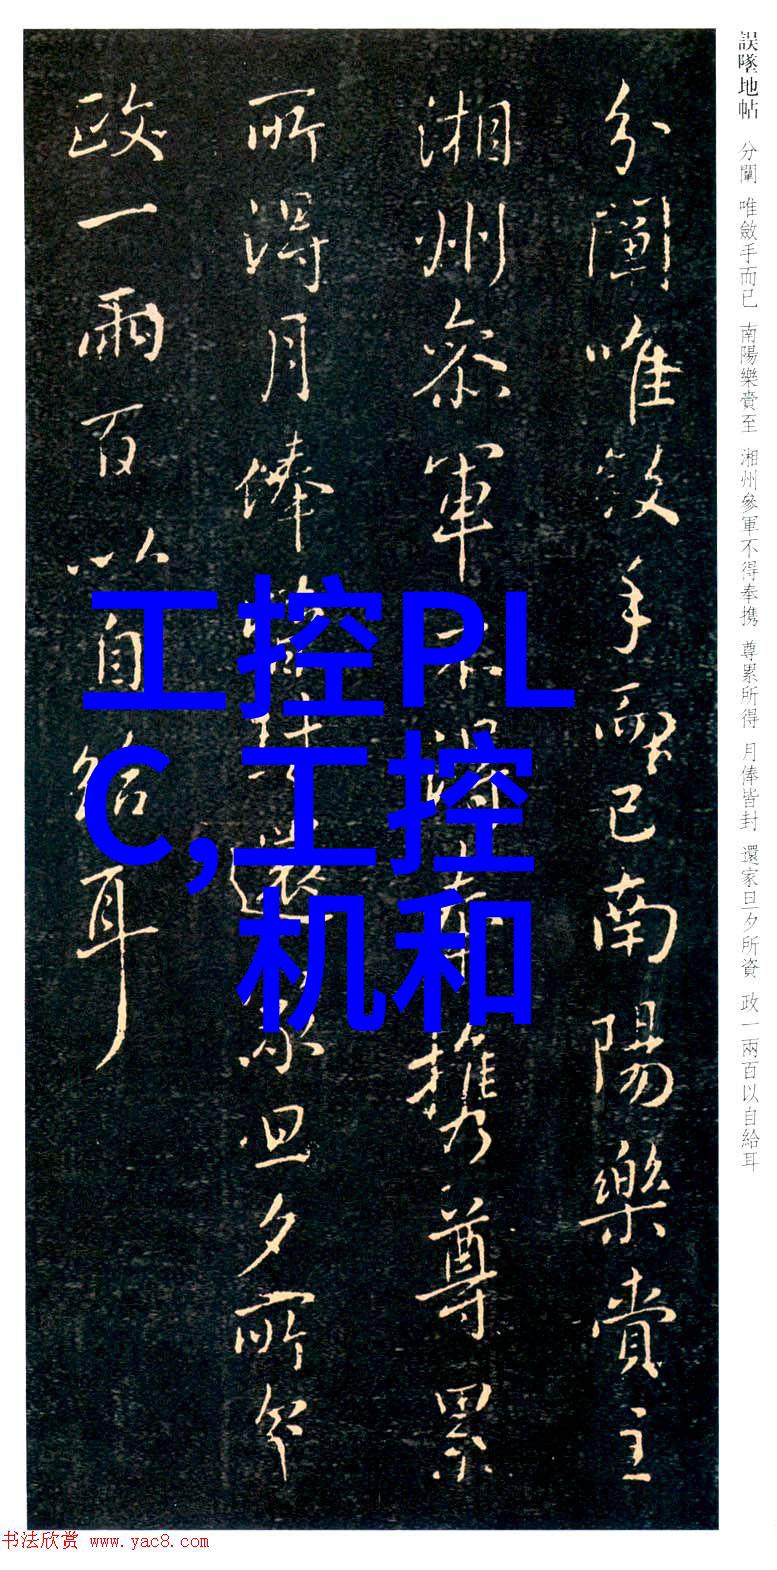 誤墜地帖 分闡 唯斂手而已 南陽樂賁至 湘州參軍不得奉携 尊累所得 月俸皆封 還家旦夕所資 政一兩百以自給耳
分闡唯斂手而已南陽樂賁至
湘州參軍不得奉携尊累
所得月俸皆封還家旦夕所資
政一兩百以自給耳
工控PL
C,工控
机和
书法欣赏 www.yac8.com